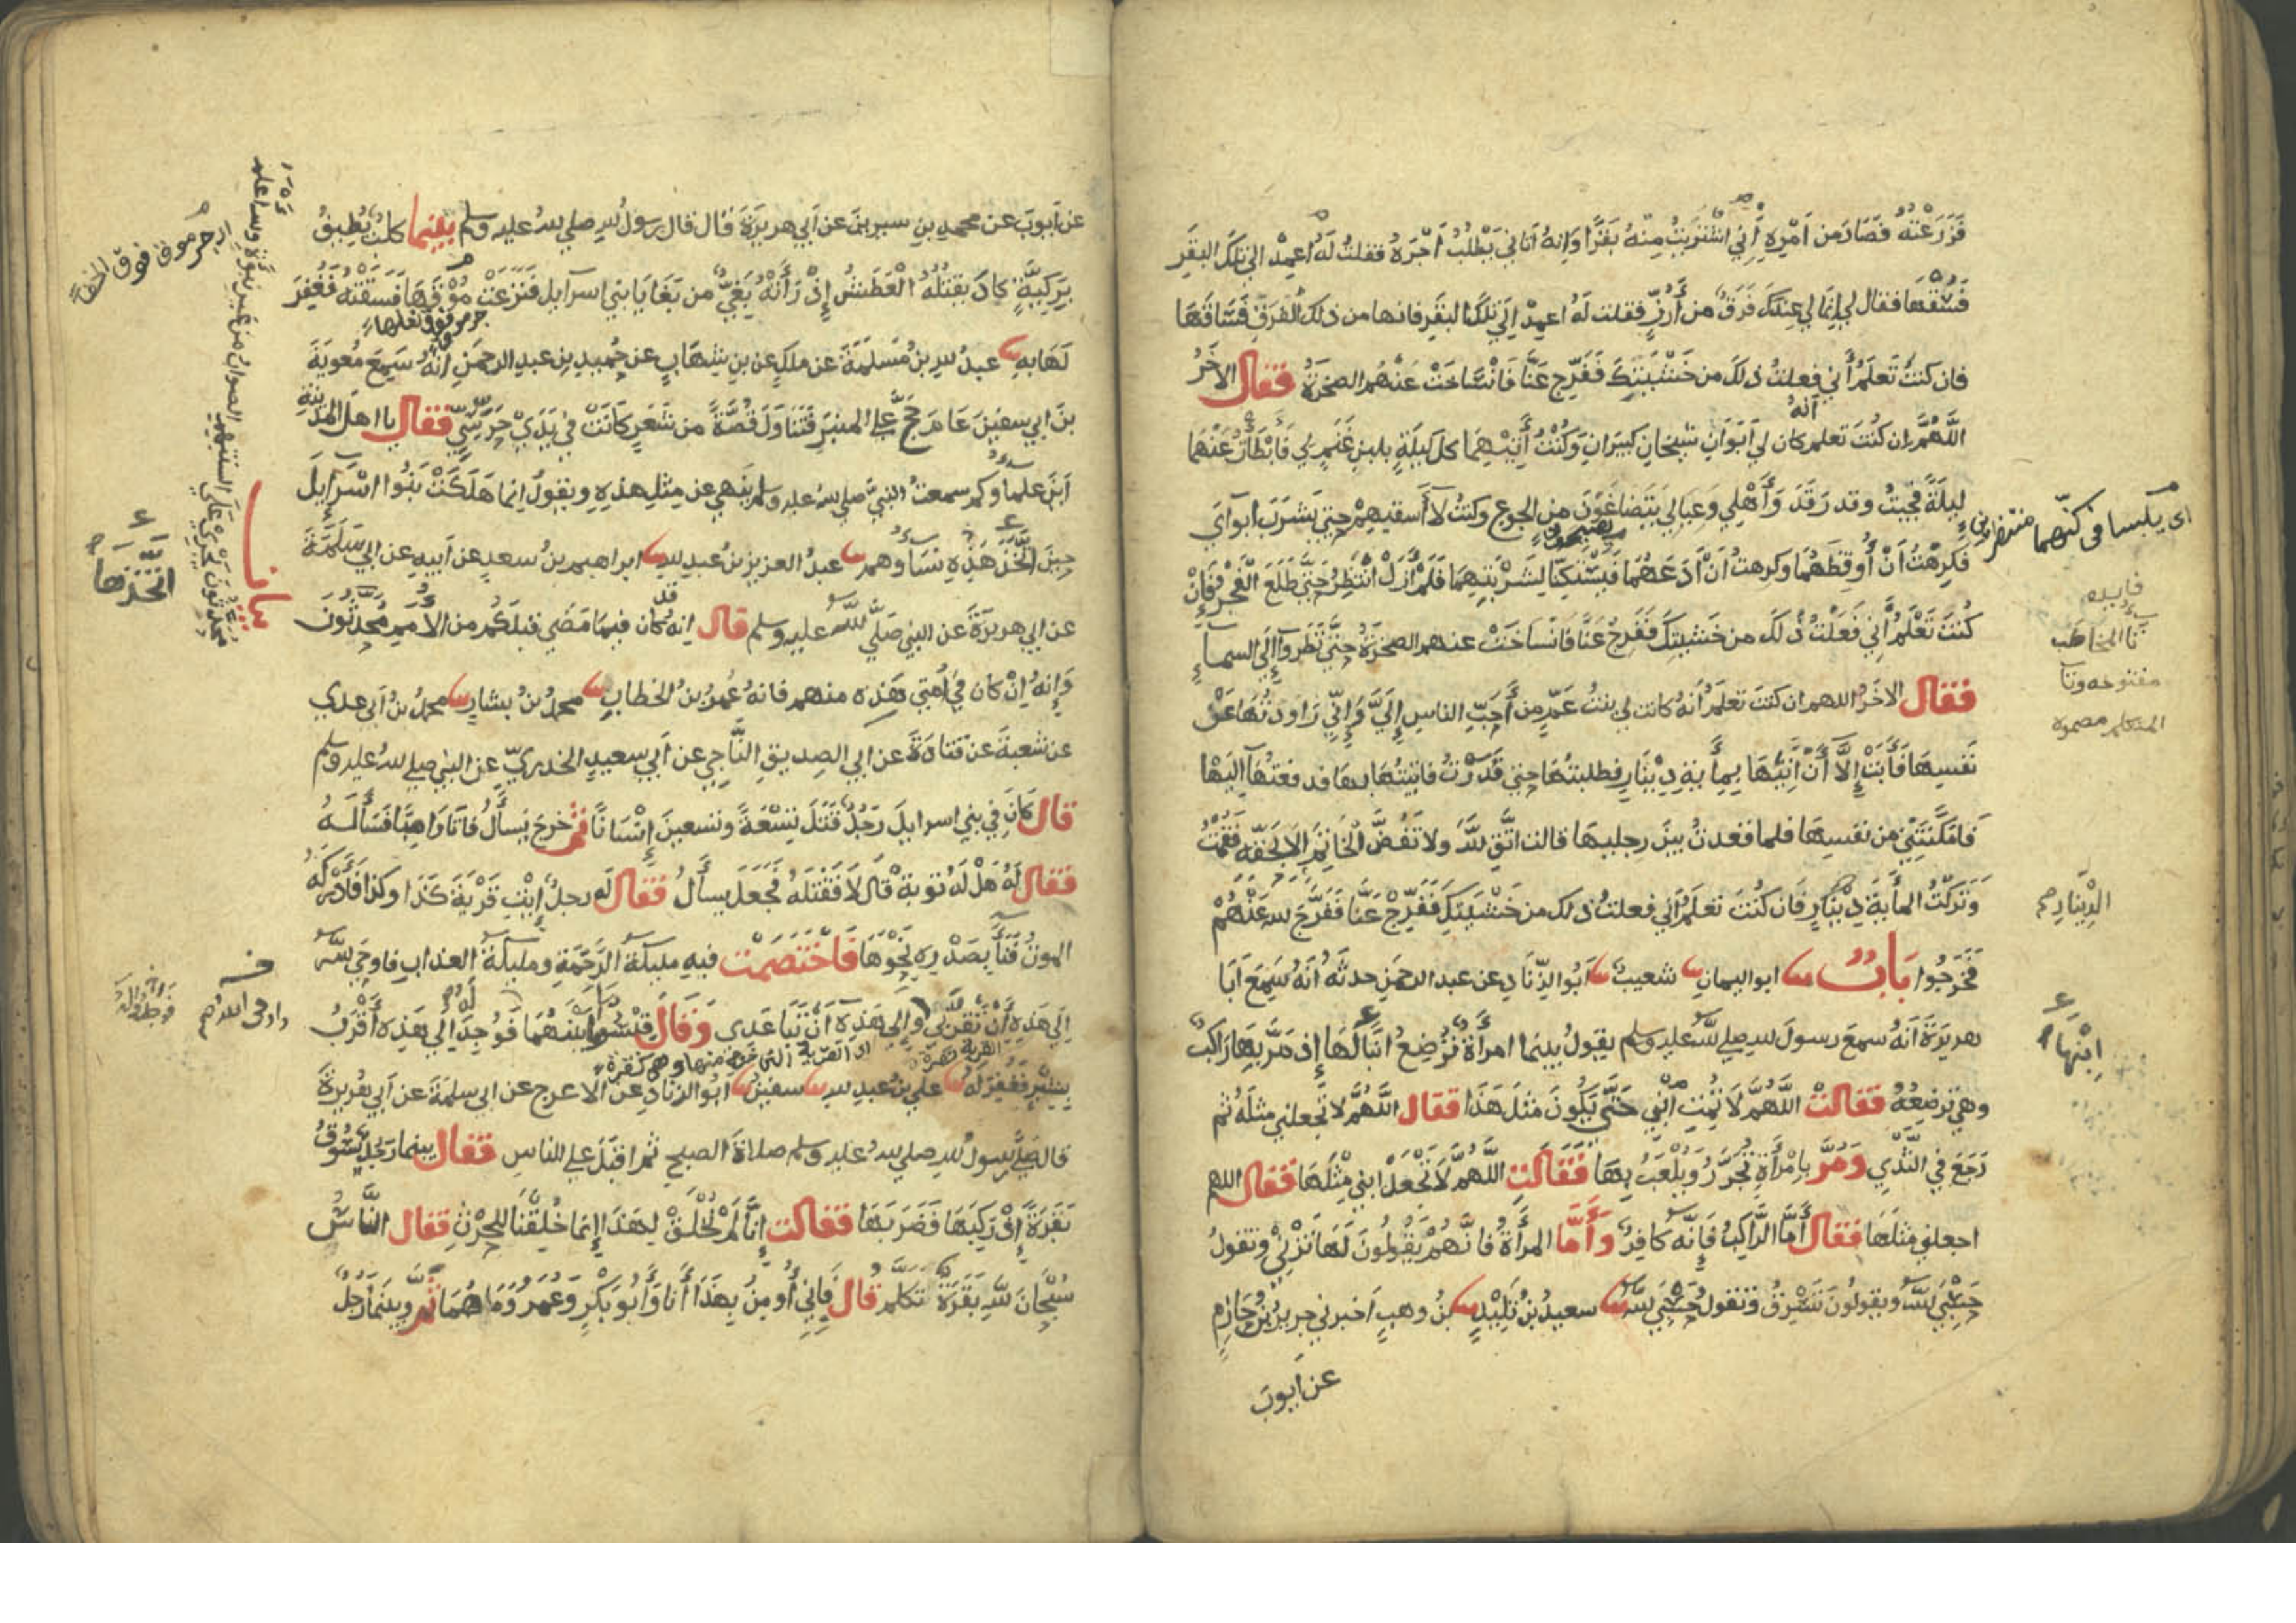 فَزَرَعْتُهُ فَصَارَ مِن أَمْرِهِ أَنِّي اشْتَرَيْتُ مِنْهُ بَقَرًا وَإِنهُ أتاني يَطْلُبُ أَجْرَهُ فقلتُ لَهُ اعمِدْ الي تلك البقَرِ
فَسُقْهَا فقال لي إنما لي عندَكَ فَرَقٌ من أَرُزٍّ فقلت لَهُ اعمِدْ الي تِلكَ البقَرِ فانها من ذلك الفَرَقِ فَسَاقَهَا
فان كنتَ تَعلَمُ أَني فعلتُ ذلكَ من خَشْيَتِكَ فَفَرِّجْ عَنَّا فَانْسَاخَتْ عَنْهُم الصخرَةُ فقال الآخَرُ
اللَّهُمَّ ان كنتَ تعلم انهُ كان لي اَبَوَانِ شيخانِ كَبيرَانِ وَكُنْتُ أتيهِمَا كل لَيلَةٍ بلبنِ غَنَمٍ لي فَأَبْطَأْتُ عَنْهُمَا
ليلَةً فجئتُ وقد رَقَدَ وَأَهْلِي وَعِيَالِي يَتَضَاغَوْنَ مِن الجوعِ وكنتُ لَا أَسقيهِمْ حتى يَشرَبَ ابوَايَ
فَكَرِهْتُ أَنْ أُوقِظَهُمَا وكرهتُ اَنْ أَدَعَهُمَا فَيَسْتَكِنَّا لِشَرْبَتِهِمَا فَلَمْ أَزَلْ أَنْتَظِرُ حَتَّى طَلَعَ الْفَجْرُ فَإِنْ
كُنتَ تَعْلَمُ أَنِّي فَعَلْتُ ذلكَ من خَشيَتِكَ فَفَرِّجْ عَنَّا فَانْسَاخَتْ عنهم الصخرَةُ حتَّى نَظَروا إِلَى السماءِ
فقال الآخَرُ اللهم ان كنتَ تعلَمُ أَنهُ كانت لي بنتُ عَمٍّ مِن أَحَبِّ الناسِ إِلَيَّ وَإِنِّي رَاوَدْتُهَا عَنْ
نَفسِهَا فَأَبَتْ إِلَّا أَنْ آتِيَهَا بِمِأَيَةِ دِينَارٍ فطلبتُهَا حتى قَدَرْتُ فاتيتُهَا بِهَا فدفعتُهَا إِلَيْهَا
فَأَمْكَنَتْنِي مِن نَفسِهَا فلما قعدتُ بينَ رجليهَا قالت اتَّقِ اللَّهَ ولا تَفُضَّ الْخَاتَمَ إِلَّا بِحَقِّهِ فَقُمْتُ
وَتَرَكْتُ المأيَةَ دِينَارٍ فَان كُنْتَ تعلَمُ أَنِّي فعلتُ ذلك من خَشْيَتِكَ فَفَرِّجْ عَنَّا فَفَرَّجَ اللهُ عَنْهُمْ
فَخَرَجُوا بَابٌ ابو اليمانِ شعيبٌ أَبُو الزِّنَادِ عن عبد الرحمَنِ حدثَهُ أَنهُ سَمِعَ أَبَا
هريرَةَ أَنهُ سمعَ رسولَ اللهِ صلى اللهُ عليه وسلم يقولُ بينما امرأَةٌ تُرْضِعُ ابْنًا لَهَا إِذ مَرَّ بِهَا رَاكِبٌ
وهي تُرضِعُهُ فقالتْ اللَّهُمَّ لَا تُمِتِ ابْنِي حَتَّى يَكُونَ مثلَ هَذَا فقال اللَّهُمَّ لا تجعلني مثلَهُ ثم
رَجَعَ فِي الثَّدْيِ وَمُرَّ بِامْرَأَةٍ تُجَرَّرُ وَيُلْعَبُ بِهَا فَقَالَتِ اللَّهُمَّ لَا تَجْعَلْ ابني مِثْلَهَا فقال اللهم
اجعلني مثلَهَا فَقال أَمَّا الرَّاكِبُ فَإِنَّهُ كَافِرٌ وَأَمَّا المرأَةُ فَإِنَّهُمْ يَقُولُونَ لَهَا تَزْنِي وتقولُ
حَسْبِيَ اللَّهُ ويقولونَ تَسْرِقُ وتقول حَسْبِيَ اللَّهُ سعيدُ بنُ تَلِيدٍ بنُ وهبٍ أخبرني جريرُ بنُ حَازِمٍ
عن ايوبَ
اي يلبسا في كنهما منتظرين
فايده
تا المخاطب
مفتوحه وتا
المتكلم مضمومه
الدِّينَارِ
ابْنَهَا
عن أَيوبَ عن محمدِ بنِ سيرينَ عن أَبي هريرَةَ قال قال رسولُ اللهِ صلى اللهُ عليه وسلم بينما كلبٌ يُطِيفُ
بِرَكِيَّةٍ كادَ يَقتُلُهُ الْعَطَشُ إِذْ رَأَتْهُ بَغِيٌّ من بَغَايَا بني اسرآيل فَنَزَعَتْ مُوقَهَا فَسَقَتْهُ فَغُفِرَ
لَهَا بِهِ عبدُ اللهِ بنُ مَسلَمَةَ عن ملكٍ عن بنِ شِهَابٍ عن حُميدِ بنِ عبدِ الرحمَنِ أَنَّهُ سَمِعَ مُعويَةَ
بنَ ابي سفينَ عَامَ حَجَّ على المنبَرِ فَتَنَاوَلَ قُصَّةً من شَعَرٍ كَانَتْ فِي يَدَيْ حَرَسِيٍّ فقال يا اهلَ المدينةِ
أَيْنَ علماؤكم سمعتُ النبيَّ صلى الله عليه وسلم يَنهى عن مِثلِ هذِهِ ويقولُ إنما هَلَكَتْ بَنُوا اسْرَايِلَ
حِينَ اتَّخَذَ هَذِهِ نِسَاؤُهم عبدُ العزيزِ بنُ عبدِ اللهِ ابراهيم بنُ سعدٍ عن أبيهِ عن ابي سَلَمَةَ
عن ابي هريرَةَ عن النبي صَلَّى اللَّهُ عليه وسلم قال إِنهُ قد كَان فيما مَضَى قبلَكُم من الأُمَمِ مُحَدَّثُونَ
وَإِنهُ إِنْ كان فِي أُمَّتِي هَذِه منهم فانهُ عُمَرُ بنُ الخطابِ محمدُ بنُ بشارٍ محمدُ بنُ أَبي عدي
عن شعبَةَ عن قتادَةَ عن ابي الصِدِيقِ النَّاجِي عن أَبي سعيدٍ الخدريِّ عن النبي صلى الله عليه وسلم
قال كَانَ فِي بني اسرايلَ رَجُلٌ قَتَلَ تِسْعَةً وتسعينَ إِنْسَانًا ثم خرجَ يَسأَلُ فَأتَا رَاهِبًا فَسَأَلَهُ
فقال لَهُ هَلْ لَهُ توبَةٌ قال لَا فَقَتَلَهُ فَجَعَلَ يسأَلُ فقال لَه رجلٌ إِيتِ قَرْيَةَ كَذَا وكذا فَأَدْرَكَهُ
الموتُ فَنَأَ بِصَدْرِهِ نَحْوَهَا فَاخْتَصَمَتْ فيهِ مليكَةُ الرَّحْمَةِ ومليكَةُ العذابِ فاوحى اللَّهُ
إلى هَذِهِ أَنْ تَقَرَّبي وإلى هَذِهِ أَنْ تَبَاعَدِي وَقَالَ قِيسُوا مَا بَيْنَهُمَا فَوُجِدَ إلى هَذِهِ أَقْرَبُ
بِشِبْرٍ فَغُفِرَ لَهُ علي بنُ عبدِ اللهِ سفينُ أَبُو الزنادِ عن الاعرجِ عن ابي سلمَةَ عن أَبي هُرَيرَةَ
قال صَلَّى رسولُ اللهِ صلى اللهُ عليه وسلم صلاةَ الصبحِ ثم اقبَلَ على الناسِ فقال بينما رجلٌ يَسُوقُ
بَقَرَةً إِذْ رَكِبَهَا فَضَرَبَهَا فقالت إِنَّا لَمْ نُخْلَقْ لِهَذَا إِنما خُلِقْنَا للحرْثِ فقال النَّاسُ
سُبْحَانَ اللَّهِ بَقَرَةٌ تَكَلَّمُ قال فَإِنِّي أُومِنُ بِهَذَا أَنَا وَأَبُو بَكْرٍ وَعُمَرُ وَمَا هُمَا ثَمَّ وبينما رَجُلٌ
جرموق فوق الخف
اتَّخَذَهَا